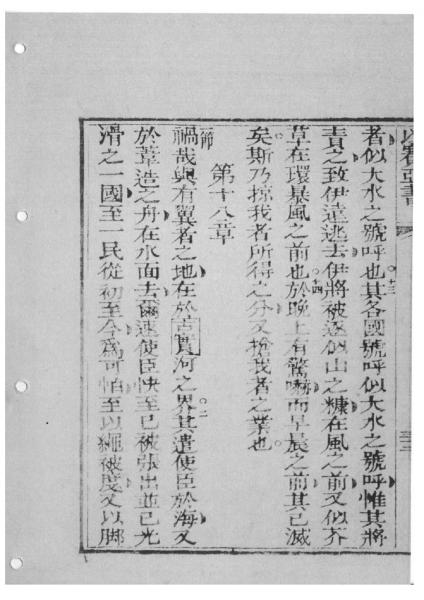 以賽亞書
者似大水之號呼也十三其各國號呼似大水之號呼惟其將
責之致伊遠逃去伊將被逐似山之糠在風之前又似芥
草在環暴風之前也十四於晚上有驚嚇而早晨之前其已滅
矣斯乃掠我者所得之分又搶我者之業也
第十八章
一節禍哉與有翼者之地在於古實河之界二其遣使臣於海又
於葦造之舟在水面去爾速使臣快至已被張出並已光
滑之一國至一民從初至今為可怕至以繩被度又以脚